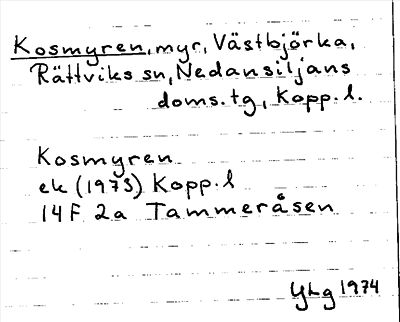 Kosmyren, myr, Västbjörka,
Rättviks sn, Nedansiljans
doms.tg, Kopp.l.
Kosmyren
ek (1973) Kopp.l
14F 2a Tammeråsen
YLg 1974